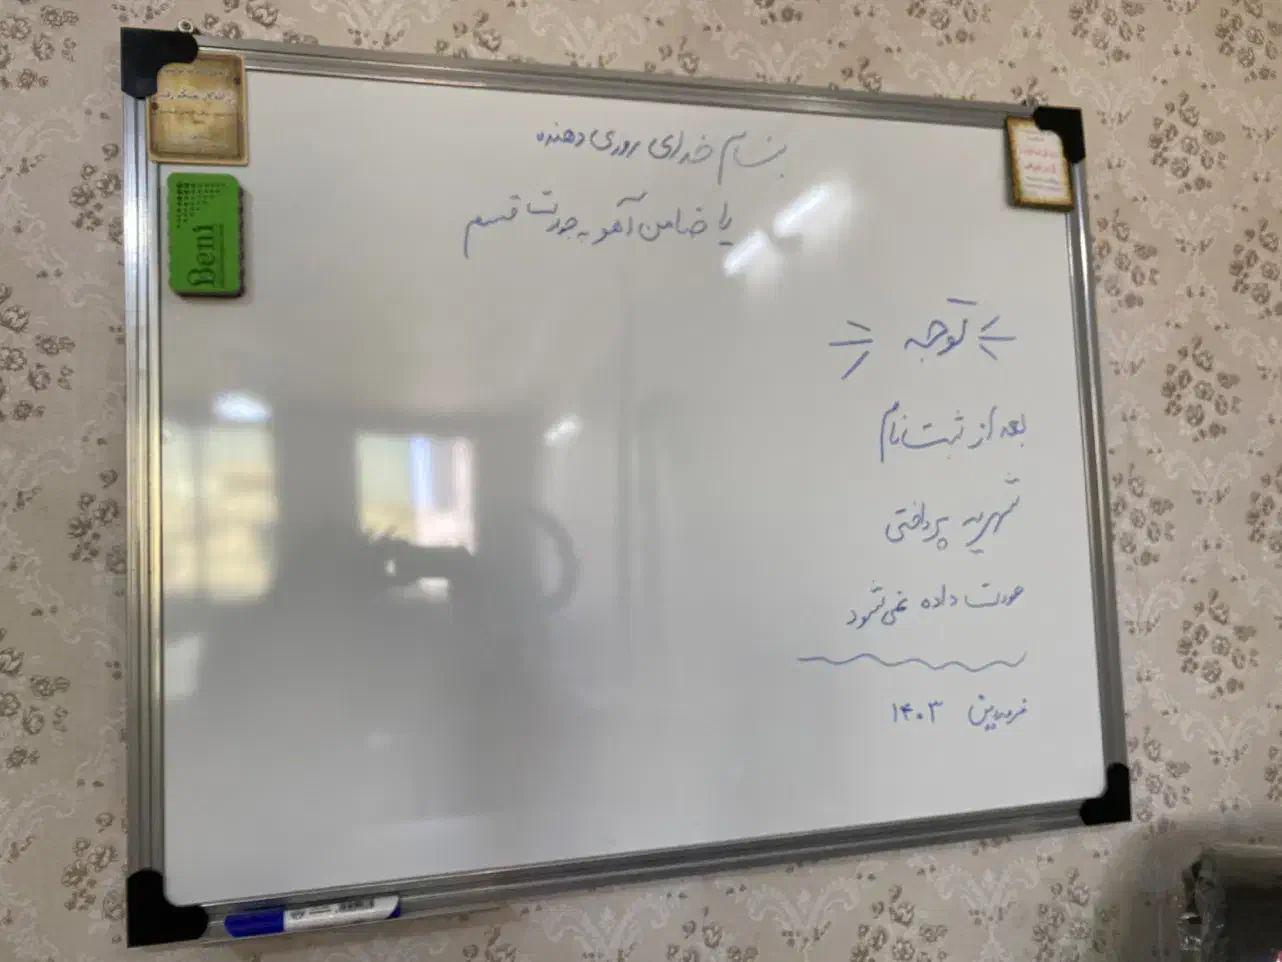 بنام خدای روزی دهنده
یا ضامن آهو به جودت قسم
توجه
بعد از ثبت نام
شهریه پرداختی
عودت داده نمی‌شود
فروردین ۱۴۰۳
Beni